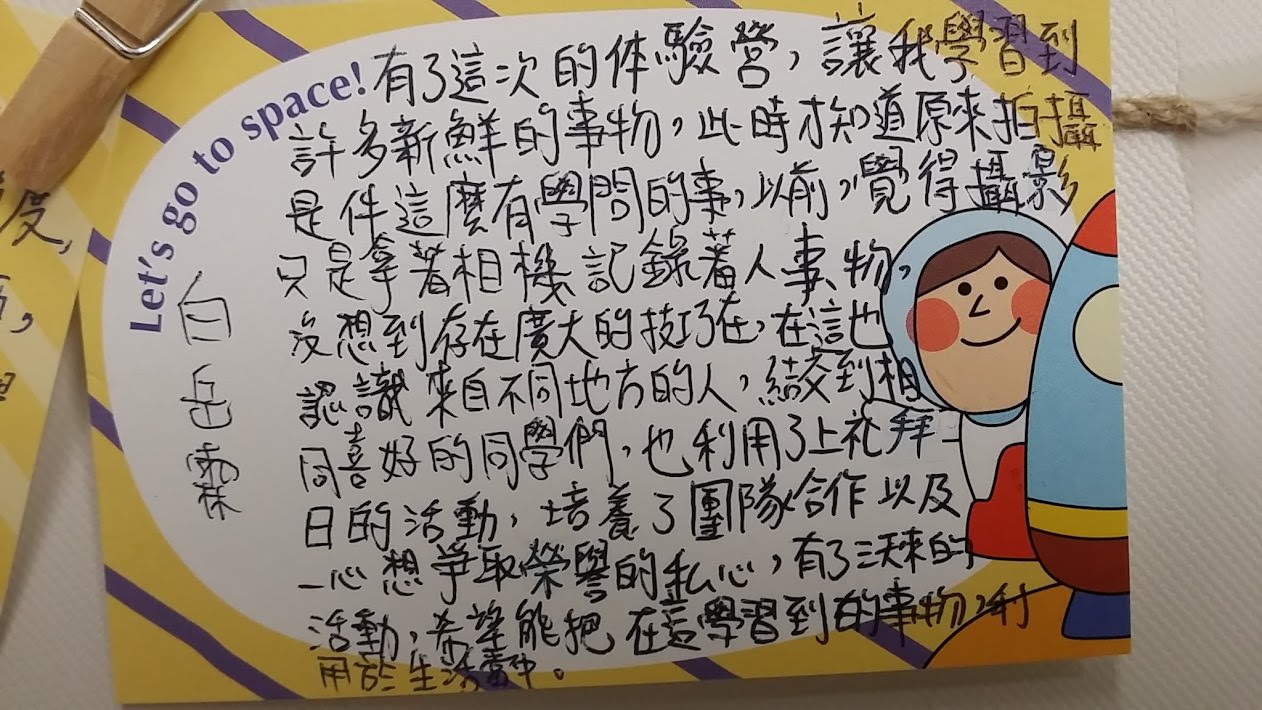 Let's go to space!
有了這次的体驗營，讓我學習到
許多新鮮的事物，此時才知道原來拍攝
是件這麼有學問的事，以前，覺得攝影
只是拿著相機記錄著人事物，
沒想到存在廣大的技巧在，在這也
認識來自不同地方的人，結交到相
同喜好的同學們，也利用了上礼拜
日的活動，培養了團隊合作以及
一心想爭取榮譽的私心，有了三天來的
活動，希望能把在這學習到的事物，利
用於生活當中。
白岳霖
度，
，